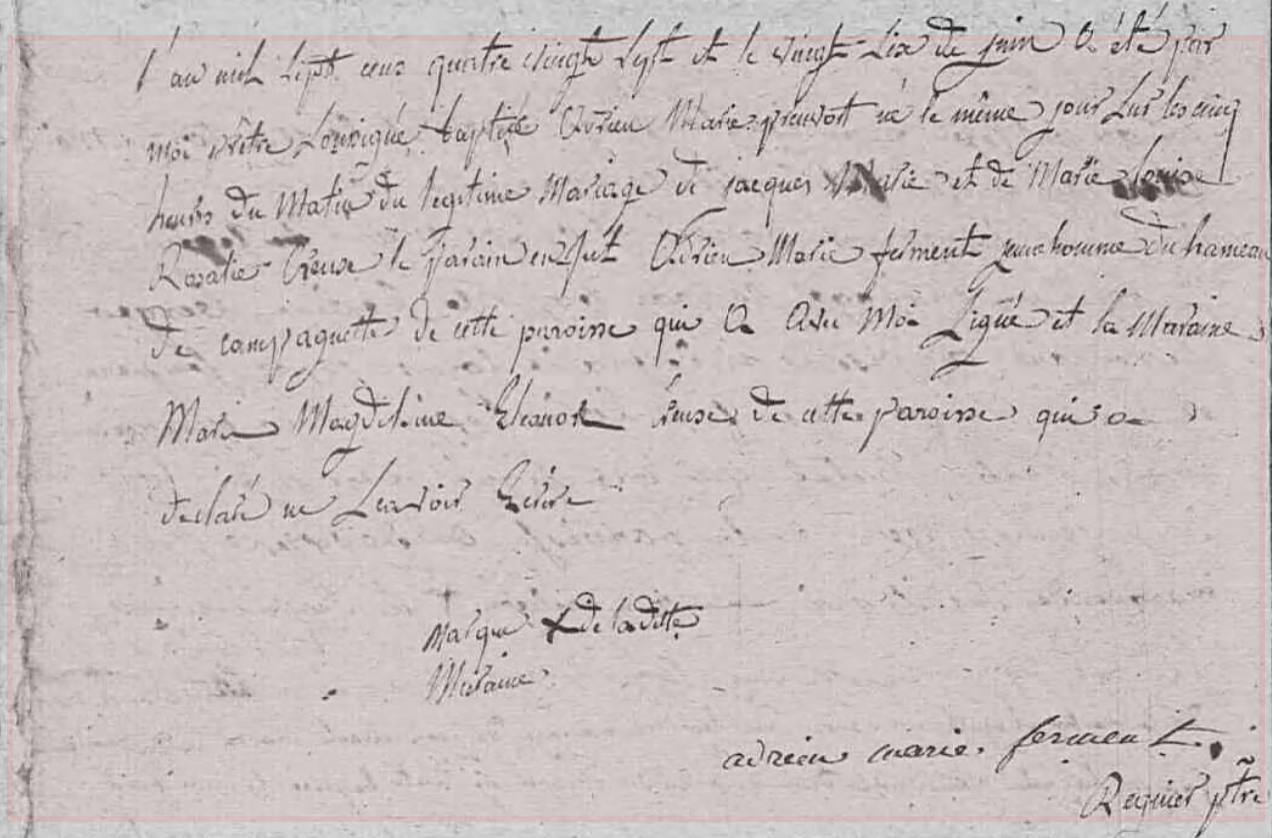 l'an mil sept cens quatre vingt sept et le vingt six de juin a été par
moi prêtre soussigné baptisé Adrien Marie prevost né le même jour sur les cinq
heures du Matin du legitime Mariage de jacques Marie et de Marie louise
Rosalie Creuse le parain en fut Adrien Marie ferment jeune homme du hameau
de campagnette de cette paroisse qui a avec Moi signé et la Maraine
Marie Magdeleine Eleanore Creuse de cette paroisse qui a
declaré ne sçavoir Ecrire
Marque x de la ditte
Maraine
adrien marie. ferment.
Requier ptre